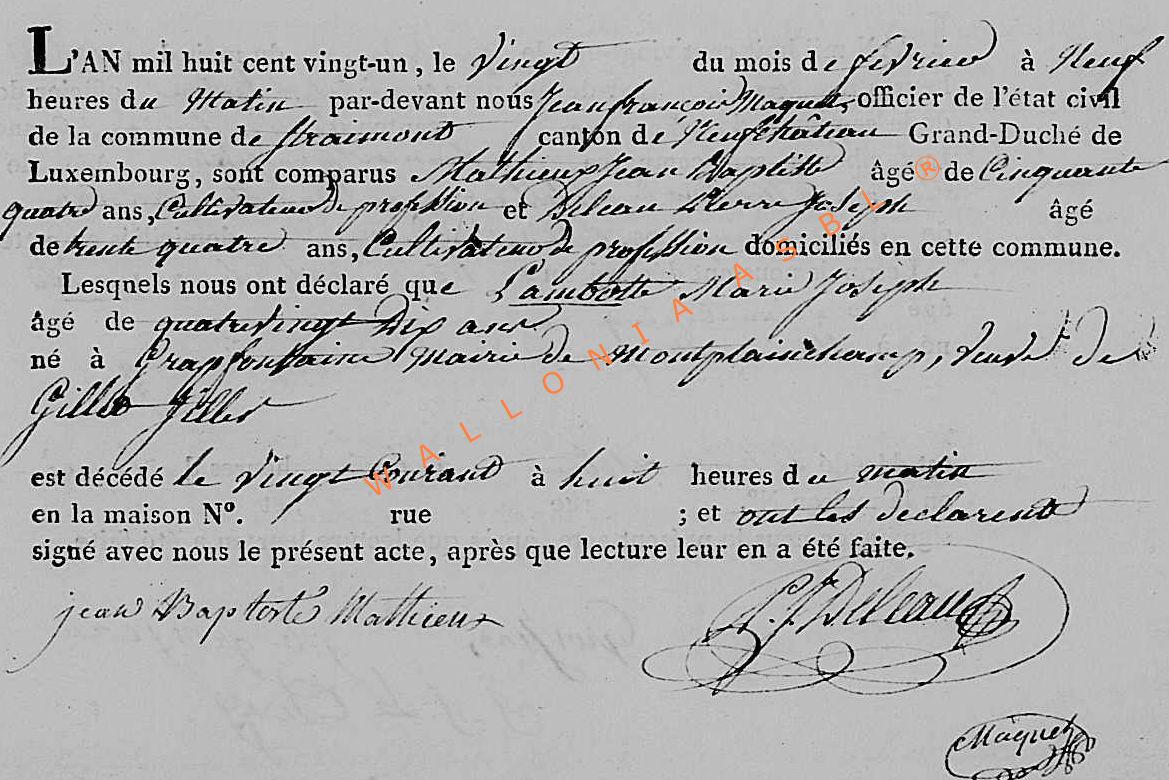 L'AN mil huit cent vingt-un, le Vingt du mois de fevrier à Neuf
heures du Matin par-devant nous Jean françois Maquet, officier de l'état civil
de la commune de Straimont canton de Neufchâteau Grand-Duché de
Luxembourg, sont comparus Mathieux Jean Baptiste âgé de Cinquante
quatre ans, Cultivateur de profession et Deleau Pierre Joseph âgé
de trente quatre ans, Cultivateur de profession domiciliés en cette commune.
Lesquels nous ont déclaré que Lambotte Marie Joseph
âgé de quatrevingt Dix ans
né à Grapfontaine Mairie de Montplainchamp, Veuve de
Gilles Gilles
est décédé le Vingt Courant à huit heures du matin
en la maison N°. / rue ; et ont les declarents
signé avec nous le présent acte, après que lecture leur en a été faite.
jean Baptiste Mathieux
P. J. Deleau
Maquet
WALLONIA ASBL ®